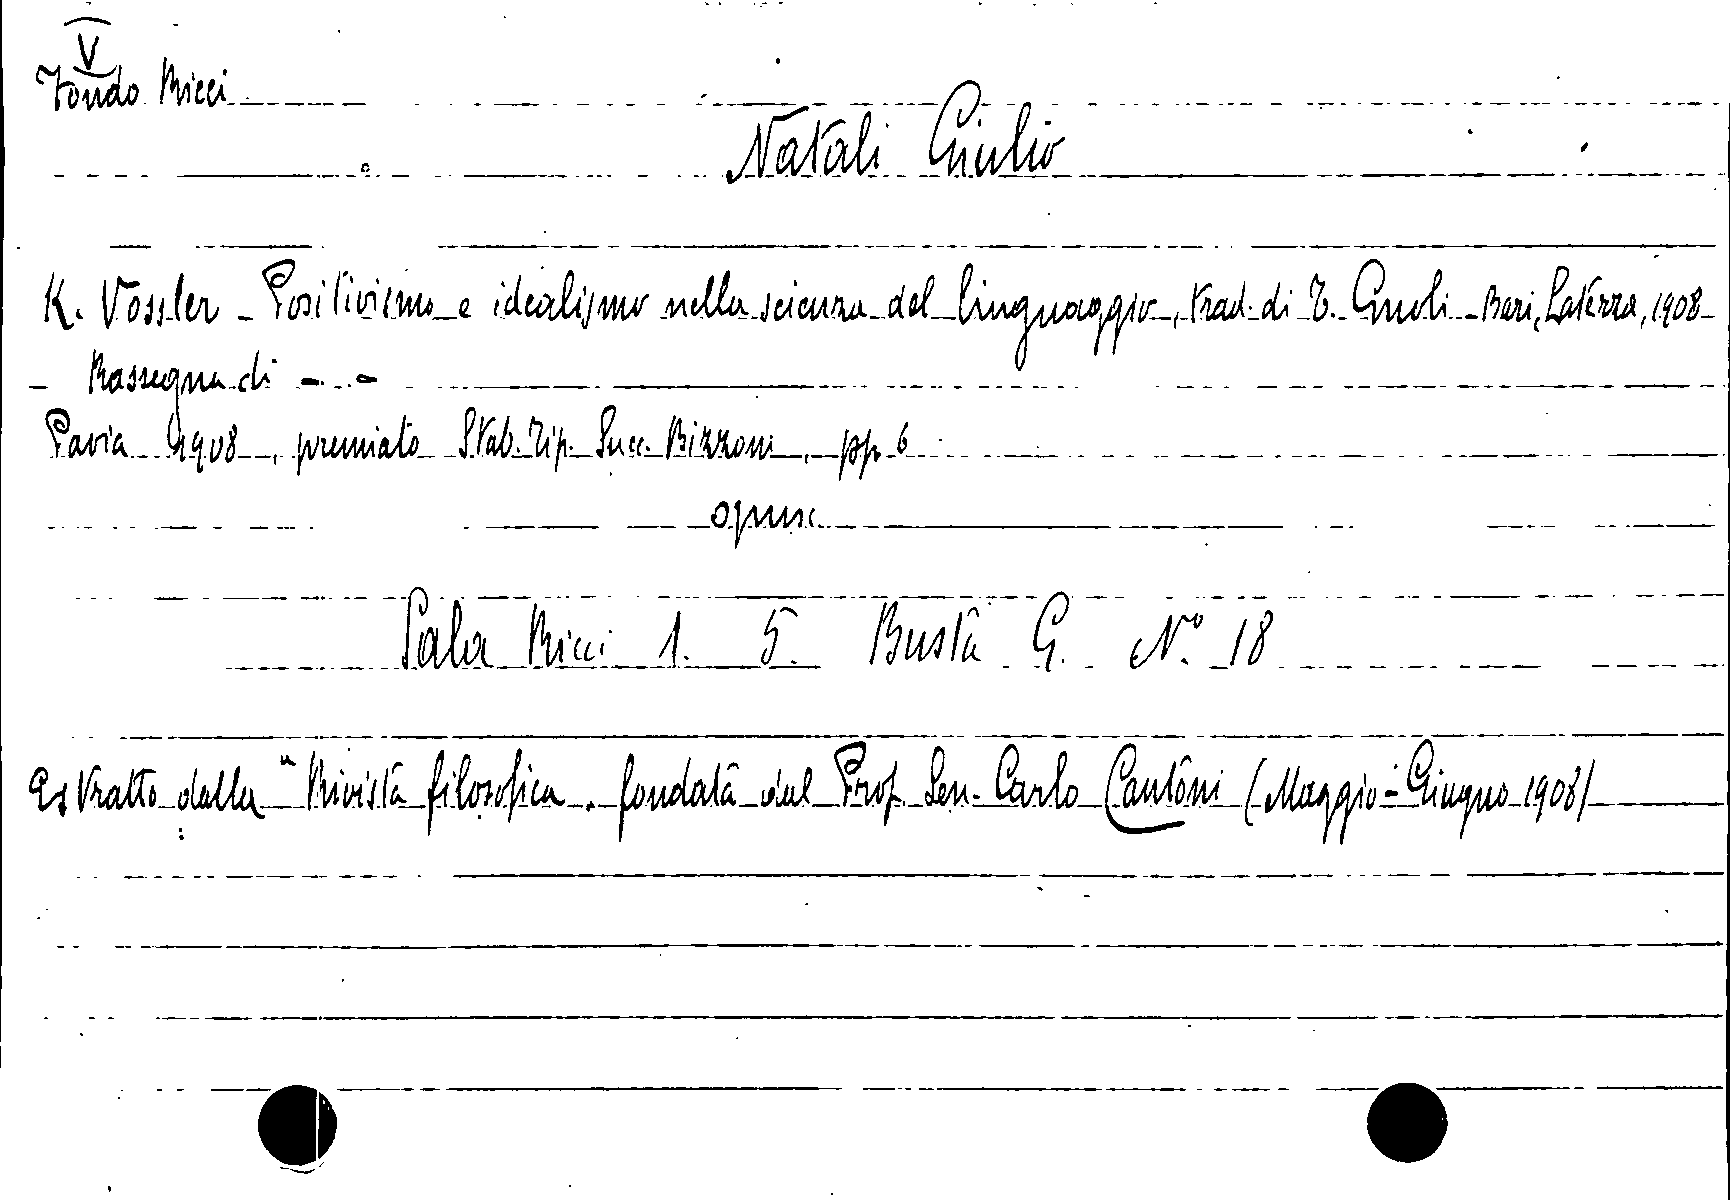 V
Fondo Ricci
Natali Giulio
K. Vossler - Positivismo e idealismo nella scienza del linguaggio, trad. di T. Gnoli - Bari, Laterza, 1908
- Rassegna di - -
Pavia 1908, premiato Stab. Tip. Succ. Bizzoni, pp. 6
opusc.
Sala Ricci 1. 5. Busta G. N.° 18
Estratto dalla "Rivista filosofica" fondata dal Prof. Sen. Carlo Cantoni (Maggio-Giugno 1908)